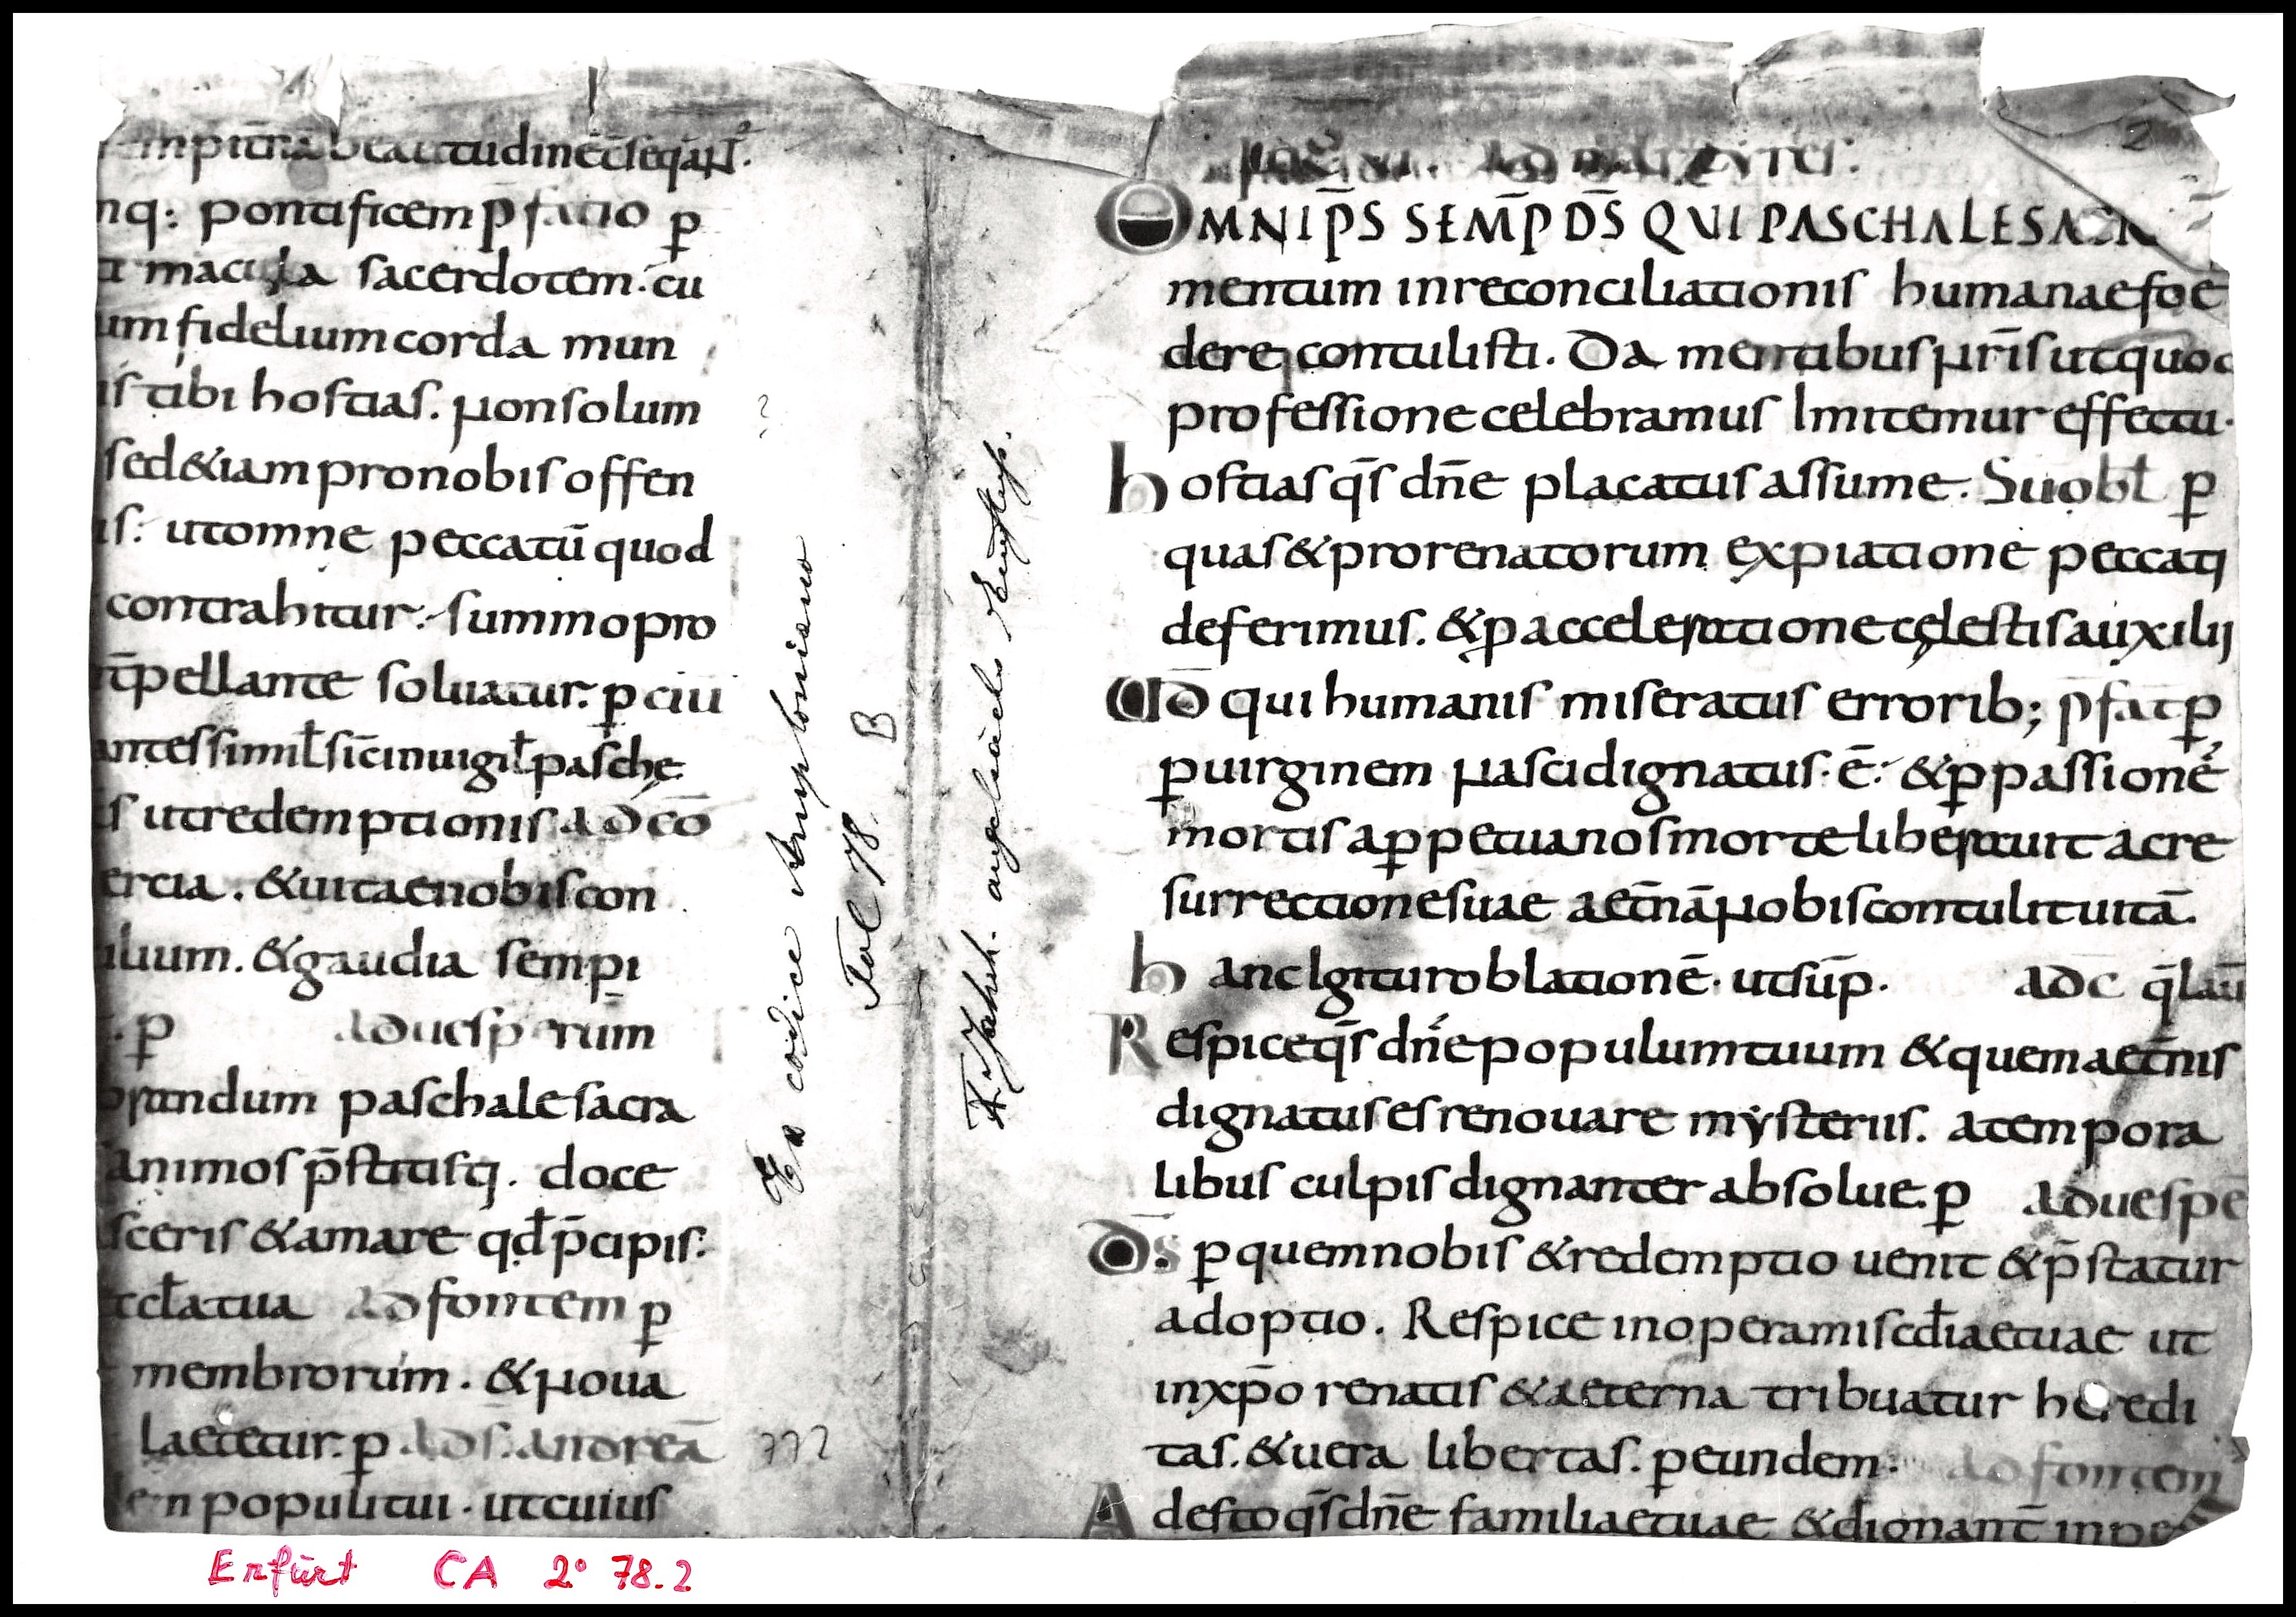 empit̄na beatitudinēc̄seq̄aꞃꞇ.
nq: pontificem p̄fatio p̱
a macula sacerdotem. cu
um fidelium corda mun
is tibi hostias. Non solum
sed & iam pro nobis offen
is: ut omne peccatū quod
contrahitur: summo pro
t̄pellante soluatur. p̱ ciu
antes simil̄ sic̄ in uigil̄ pasche
s ut redemptionis ad cō
ercia. & uitae nobis con
ilium. & gaudia sempi
p̱ ad uesperum
randum paschale sacra
animos p̄stitisti. doce
sceris & amare qd̄ p̄cipis:
tcl̄a tua ad fontem p̱
membrorum. & Noua
laetetur. p̱ ad s̄. andreā
populi tui. ut cuius
OMNIP̄S SEMP̄ D̄S QUI PASCHALE SACR
mentum in reconciliationis humanae foe
dere contulisti. Da mentibus Nr̄is ut quod
professione celebramus Imitemur effectu.
hostias q̄s dn̄e placatus assume. Su obl̄ p̱
quas & pro renatorum expiatione peccati
deferimus. & p̱ acceleratione cęlestis auxilii
UD̄ qui humanis miseratus errorib; p̄fat p̱
p̱ uirginem Nasci dignatus. ē: & p̱ passionē
mortis a p̱petua nos morte liberauit ac re
surrectione suae aet̄nā Nobis contulit uitā.
hanc Igitur oblationē. ut sup̄. ad c q̄ laū
Respice q̄s dn̄e populum tuum & quem aet̄nis
dignatus es renouare mysteriis. a tempora
libus culpis dignanter absolue. p̱ ad uespe
D̄s p̱ quem nobis & redemptio uenit & p̄statur
adoptio. Respice in opera misc̄diae tuae ut
in xp̄o renatis & aeterna tribuatur heredi
tas. & uera libertas. p̱ eundem: ad fontem
Adesto q̄s dn̄e familiae tuae & dignant̄
Ex codice Amploniano
Fol 78.
B
772
2
Erfurt CA 2° 78.2